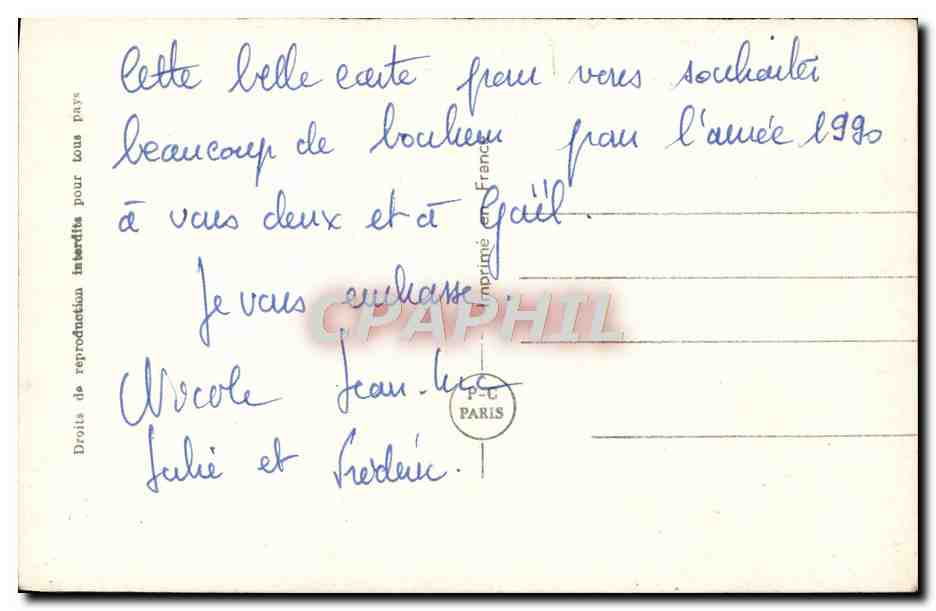 Cette belle carte pour vous souhaiter
beaucoup de bonheur pour l'année 1990
à vous deux et à Gaël.
Je vous embrasse.
Nicole Jean-Luc
Julie et Frédéric.
Droits de reproduction interdits pour tous pays
Imprimé en France
P-C
PARIS
CPAPHIL